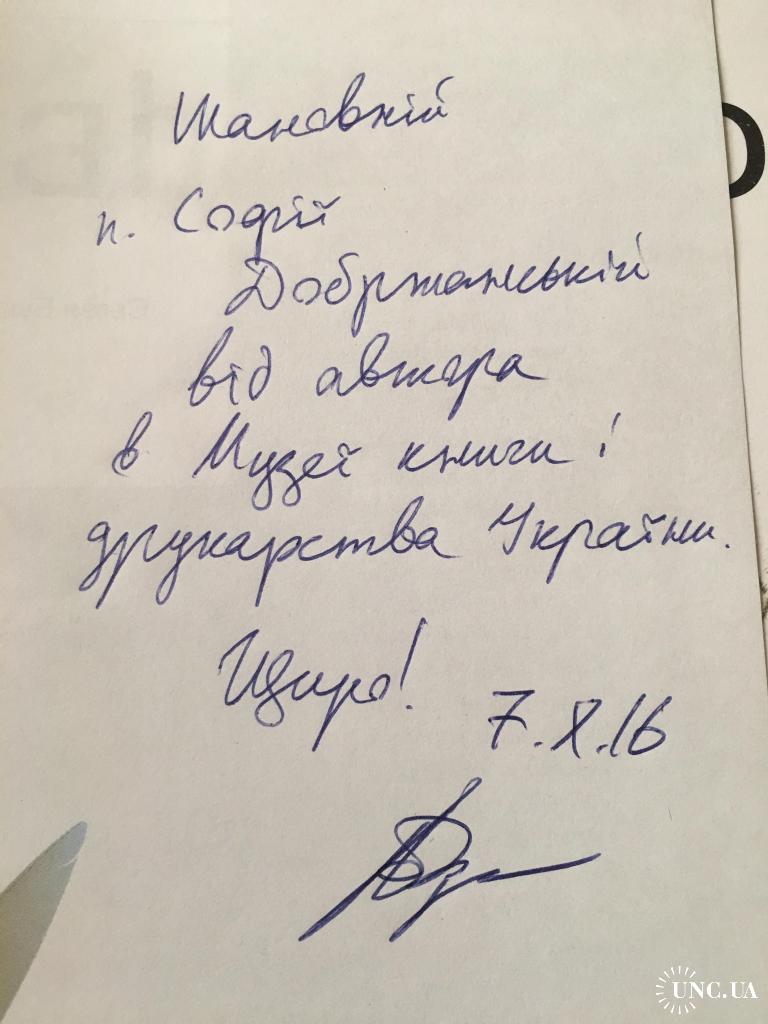 Шановній
п. Софії
Добржанській
від автора
в Музеї книги і
друкарства України.
Щиро!
7.X.16
UNC.UA